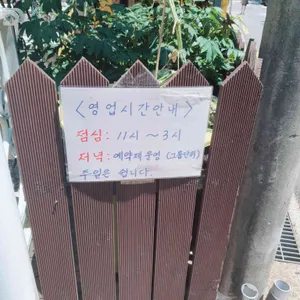 <영업시간안내>
점심: 11시~3시
저녁: 예약제 운영 (그룹단위)
주일은 쉽니다.